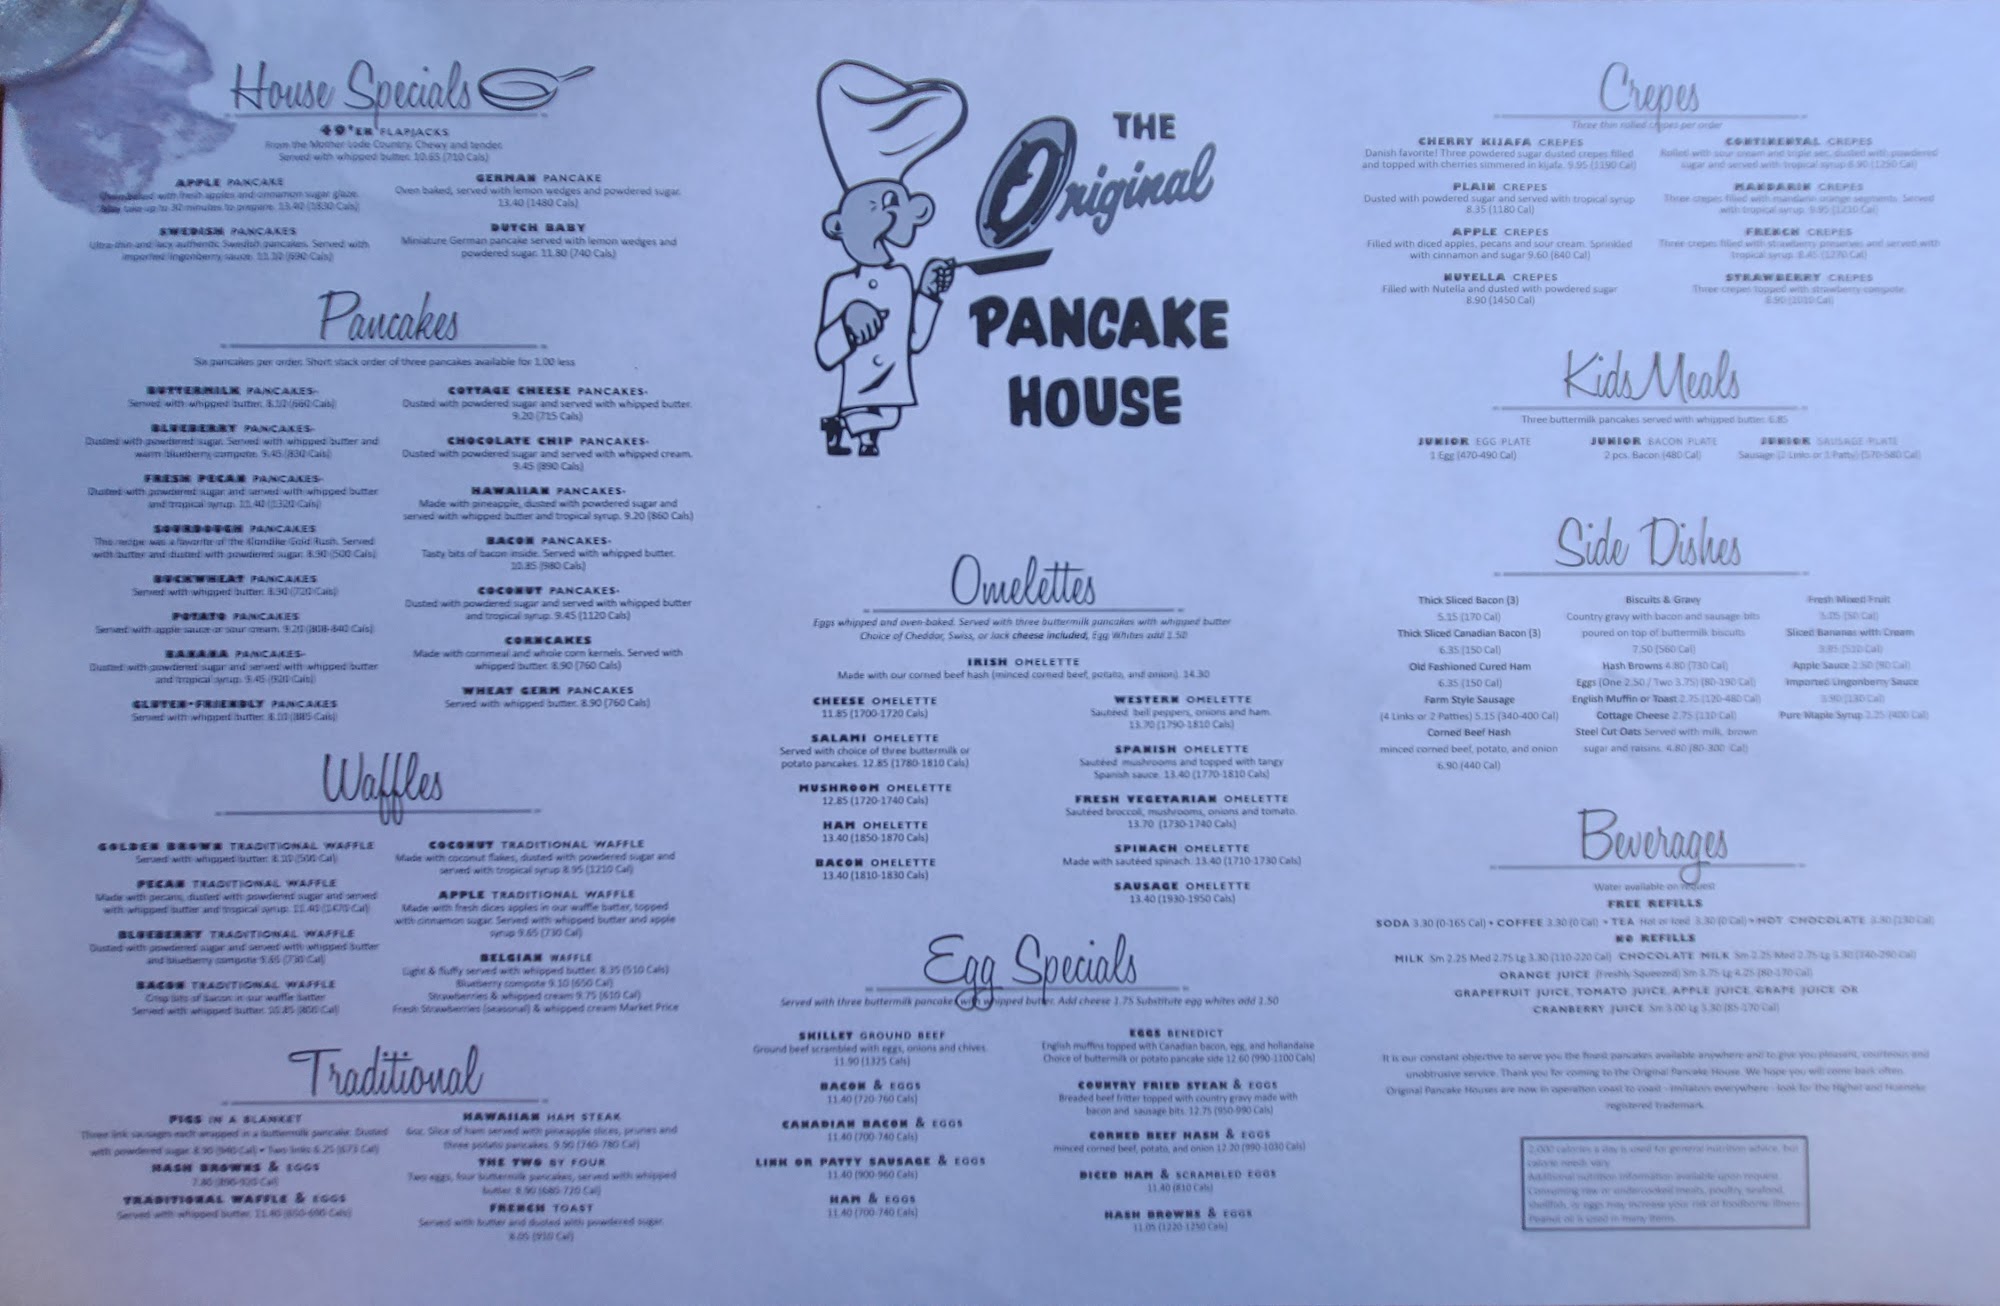 House Specials
49'ER FLAPJACKS
From the Mother Lode Country. Chewy and tender.
Served with whipped butter. 10.65 (710 Cals)
APPLE PANCAKE
Oven baked with fresh apples and cinnamon sugar glaze.
May take up to 30 minutes to prepare. 13.40 (1830 Cals)
SWEDISH PANCAKES
Ultra-thin and lacy authentic Swedish pancakes. Served with
imported lingonberry sauce. 11.10 (690 Cals)
GERMAN PANCAKE
Oven baked, served with lemon wedges and powdered sugar.
13.40 (1480 Cals)
DUTCH BABY
Miniature German pancake served with lemon wedges and
powdered sugar. 11.80 (740 Cals)
Pancakes
Six pancakes per order. Short stack order of three pancakes available for 1.00 less
BUTTERMILK PANCAKES-
Served with whipped butter. 8.10 (660 Cals)
BLUEBERRY PANCAKES-
Dusted with powdered sugar. Served with whipped butter and
warm blueberry compote. 9.45 (830 Cals)
FRESH PECAN PANCAKES-
Dusted with powdered sugar and served with whipped butter
and tropical syrup. 11.40 (1320 Cals)
SOURDOUGH PANCAKES
This recipe was a favorite of the Klondike Gold Rush. Served
with butter and dusted with powdered sugar. 8.90 (500 Cals)
BUCKWHEAT PANCAKES
Served with whipped butter. 8.90 (720 Cals)
POTATO PANCAKES
Served with apple sauce or sour cream. 9.20 (808-840 Cals)
BANANA PANCAKES-
Dusted with powdered sugar and served with whipped butter
and tropical syrup. 9.45 (920 Cals)
GLUTEN-FRIENDLY PANCAKES
Served with whipped butter. 8.10 (885 Cals)
COTTAGE CHEESE PANCAKES-
Dusted with powdered sugar and served with whipped butter.
9.20 (715 Cals)
CHOCOLATE CHIP PANCAKES-
Dusted with powdered sugar and served with whipped cream.
9.45 (890 Cals)
HAWAIIAN PANCAKES-
Made with pineapple, dusted with powdered sugar and
served with whipped butter and tropical syrup. 9.20 (860 Cals)
BACON PANCAKES-
Tasty bits of bacon inside. Served with whipped butter.
10.85 (980 Cals)
COCONUT PANCAKES-
Dusted with powdered sugar and served with whipped butter
and tropical syrup. 9.45 (1120 Cals)
CORNCAKES
Made with cornmeal and whole corn kernels. Served with
whipped butter. 8.90 (760 Cals)
WHEAT GERM PANCAKES
Served with whipped butter. 8.90 (760 Cals)
Waffles
GOLDEN BROWN TRADITIONAL WAFFLE
Served with whipped butter. 8.10 (500 Cal)
PECAN TRADITIONAL WAFFLE
Made with pecans, dusted with powdered sugar and served
with whipped butter and tropical syrup. 11.40 (1470 Cal)
BLUEBERRY TRADITIONAL WAFFLE
Dusted with powdered sugar and served with whipped butter
and blueberry compote 9.65 (730 Cal)
BACON TRADITIONAL WAFFLE
Crisp bits of bacon in our waffle batter
Served with whipped butter. 10.85 (800 Cal)
COCONUT TRADITIONAL WAFFLE
Made with coconut flakes, dusted with powdered sugar and
served with tropical syrup 8.95 (1210 Cal)
APPLE TRADITIONAL WAFFLE
Made with fresh dices apples in our waffle batter, topped
with cinnamon sugar. Served with whipped butter and apple
syrup 9.65 (730 Cal)
BELGIAN WAFFLE
Light & fluffy served with whipped butter. 8.35 (510 Cals)
Blueberry compote 9.10 (650 Cal)
Strawberries & whipped cream 9.75 (610 Cal)
Fresh Strawberries (seasonal) & whipped cream Market Price
Traditional
PIGS IN A BLANKET
Three link sausages each wrapped in a buttermilk pancake. Dusted
with powdered sugar. 8.90 (940 Cal) • Two links 6.25 (673 Cal)
HASH BROWNS & EGGS
7.80 (890-920 Cal)
TRADITIONAL WAFFLE & EGGS
Served with whipped butter. 11.40 (650-690 Cals)
HAWAIIAN HAM STEAK
6oz. Slice of ham served with pineapple slices, prunes and
three potato pancakes. 9.90 (740-780 Cal)
THE TWO BY FOUR
Two eggs, four buttermilk pancakes, served with whipped
butter. 8.90 (680-720 Cal)
FRENCH TOAST
Served with butter and dusted with powdered sugar.
8.05 (910 Cal)
THE
Original
PANCAKE
HOUSE
Omelettes
Eggs whipped and oven-baked. Served with three buttermilk pancakes with whipped butter
Choice of Cheddar, Swiss, or Jack cheese included, Egg Whites add 1.50
IRISH OMELETTE
Made with our corned beef hash (minced corned beef, potato, and onion). 14.30
CHEESE OMELETTE
11.85 (1700-1720 Cals)
SALAMI OMELETTE
Served with choice of three buttermilk or
potato pancakes. 12.85 (1780-1810 Cals)
MUSHROOM OMELETTE
12.85 (1720-1740 Cals)
HAM OMELETTE
13.40 (1850-1870 Cals)
BACON OMELETTE
13.40 (1810-1830 Cals)
WESTERN OMELETTE
Sautéed bell peppers, onions and ham.
13.70 (1790-1810 Cals)
SPANISH OMELETTE
Sautéed mushrooms and topped with tangy
Spanish sauce. 13.40 (1770-1810 Cals)
FRESH VEGETARIAN OMELETTE
Sautéed broccoli, mushrooms, onions and tomato.
13.70 (1730-1740 Cals)
SPINACH OMELETTE
Made with sautéed spinach. 13.40 (1710-1730 Cals)
SAUSAGE OMELETTE
13.40 (1930-1950 Cals)
Egg Specials
Served with three buttermilk pancake with whipped butter. Add cheese 1.75 Substitute egg whites add 1.50
SKILLET GROUND BEEF
Ground beef scrambled with eggs, onions and chives.
11.90 (1325 Cals)
BACON & EGGS
11.40 (720-760 Cals)
CANADIAN BACON & EGGS
11.40 (700-740 Cals)
LINK OR PATTY SAUSAGE & EGGS
11.40 (900-960 Cals)
HAM & EGGS
11.40 (700-740 Cals)
EGGS BENEDICT
English muffins topped with Canadian bacon, egg, and hollandaise
Choice of buttermilk or potato pancake side 12.60 (990-1100 Cals)
COUNTRY FRIED STEAK & EGGS
Breaded beef fritter topped with country gravy made with
bacon and sausage bits. 12.75 (950-990 Cals)
CORNED BEEF HASH & EGGS
minced corned beef, potato, and onion 12.20 (990-1030 Cals)
DICED HAM & SCRAMBLED EGGS
11.40 (810 Cals)
HASH BROWNS & EGGS
11.05 (1220-1250 Cals)
Crepes
Three thin rolled crepes per order
CHERRY KIJAFA CREPES
Danish favorite! Three powdered sugar dusted crepes filled
and topped with cherries simmered in kijafa. 9.95 (1190 Cal)
PLAIN CREPES
Dusted with powdered sugar and served with tropical syrup
8.35 (1180 Cal)
APPLE CREPES
Filled with diced apples, pecans and sour cream. Sprinkled
with cinnamon and sugar 9.60 (640 Cal)
NUTELLA CREPES
Filled with Nutella and dusted with powdered sugar
8.90 (1450 Cal)
CONTINENTAL CREPES
Rolled with sour cream and triple sec, dusted with powdered
sugar and served with tropical syrup 8.90 (1250 Cal)
MANDARIN CREPES
Three crepes filled with mandarin orange segments. Served
with tropical syrup. 9.95 (1210 Cal)
FRENCH CREPES
Three crepes filled with strawberry preserves and served with
tropical syrup. 8.45 (1270 Cal)
STRAWBERRY CREPES
Three crepes topped with strawberry compote.
8.90 (1010 Cal)
Kids Meals
Three buttermilk pancakes served with whipped butter. 6.85
JUNIOR EGG PLATE
1 Egg (470-490 Cal)
JUNIOR BACON PLATE
2 pcs. Bacon (480 Cal)
JUNIOR SAUSAGE PLATE
Sausage (2 Links or 1 Patty) (570-580 Cal)
Side Dishes
Thick Sliced Bacon (3)
5.15 (170 Cal)
Thick Sliced Canadian Bacon (3)
6.35 (150 Cal)
Old Fashioned Cured Ham
6.35 (150 Cal)
Farm Style Sausage
(4 Links or 2 Patties) 5.15 (340-400 Cal)
Corned Beef Hash
minced corned beef, potato, and onion
6.90 (440 Cal)
Biscuits & Gravy
Country gravy with bacon and sausage bits
poured on top of buttermilk biscuits
7.50 (560 Cal)
Hash Browns 4.80 (730 Cal)
Eggs (One 2.50 / Two 3.75) (80-190 Cal)
English Muffin or Toast 2.75 (120-480 Cal)
Cottage Cheese 2.75 (110 Cal)
Steel Cut Oats Served with milk, brown
sugar and raisins. 4.80 (80-300 Cal)
Fresh Mixed Fruit
(50 Cal)
Sliced Bananas with Cream
3.95 (510 Cal)
Apple Sauce 2.50 (90 Cal)
Imported Lingonberry Sauce
3.90 (130 Cal)
Pure Maple Syrup 2.25 (400 Cal)
Beverages
Water available on request
FREE REFILLS
SODA 3.30 (0-165 Cal) • COFFEE 3.30 (0 Cal) • TEA Hot or Iced 3.30 (0 Cal) • HOT CHOCOLATE 3.30 (130 Cal)
NO REFILLS
MILK Sm 2.25 Med 2.75 Lg 3.30 (110-220 Cal) CHOCOLATE MILK Sm 2.25 Med 2.75 Lg 3.30 (140-290 Cal)
ORANGE JUICE (Freshly Squeezed) Sm 3.75 Lg 4.25 (80-170 Cal)
GRAPEFRUIT JUICE, TOMATO JUICE, APPLE JUICE, GRAPE JUICE OR
CRANBERRY JUICE Sm 3.00 Lg 3.30 (85-170 Cal)
It is our constant objective to serve you the finest pancakes available anywhere and to give you pleasant, courteous and
unobtrusive service. Thank you for coming to the Original Pancake House. We hope you will come back often.
Original Pancake Houses are now in operation coast to coast - imitators everywhere - look for the Highet and Hueneke
registered trademark.
2,000 calories a day is used for general nutrition advice, but
calorie needs vary.
Additional nutrition information available upon request.
Consuming raw or undercooked meats, poultry, seafood,
shellfish, or eggs may increase your risk of foodborne illness
Peanut oil is used in many items.